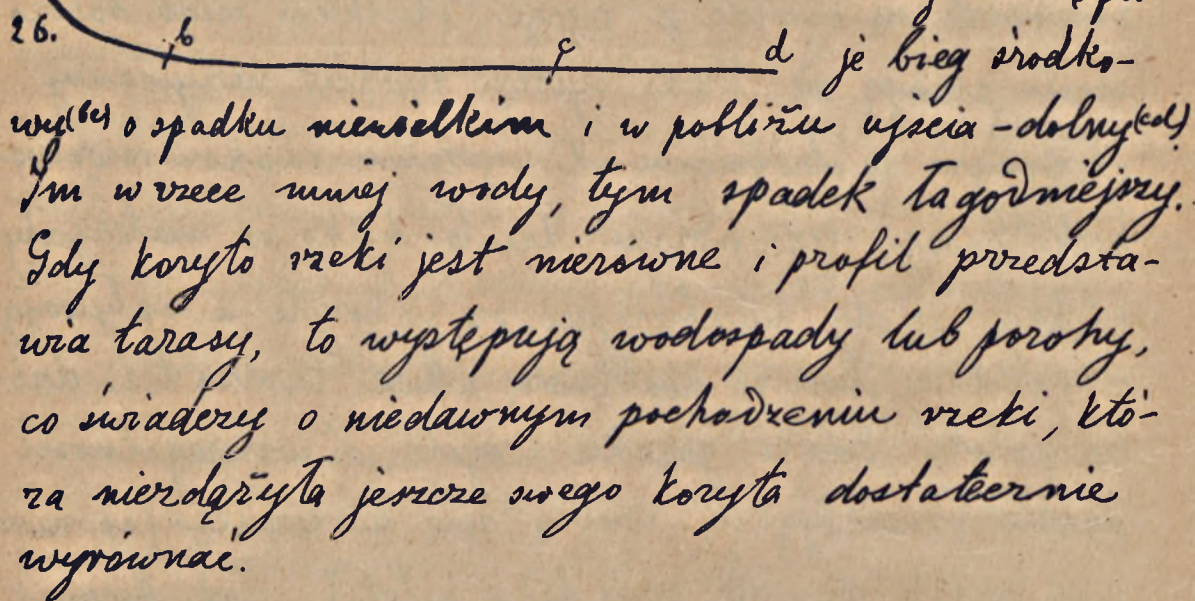 26. b c d je bieg środko-
wy (bc) o spadku niewielkim i w pobliżu ujścia - dolny (cd).
Im w rzece mniej wody, tym spadek łagodniejszy.
Gdy koryto rzeki jest nierówne i profil przedsta-
wia tarasy, to występują wodospady lub porohy,
co świadczy o niedawnym pochodzeniu rzeki, któ-
ra niezdążyła jeszcze swego koryta dostatecznie
wyrównać.